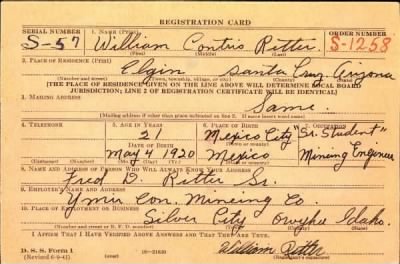 REGISTRATION CARD
SERIAL NUMBER 1. NAME (Print) ORDER NUMBER
S-57 William Contris Ritter S-1258
(First) (Middle) (Last)
2. PLACE OF RESIDENCE (Print)
Elgin Santa Cruz Arizona
(Number and street) (Town, township, village, or city) (County) (State)
[THE PLACE OF RESIDENCE GIVEN ON THE LINE ABOVE WILL DETERMINE LOCAL BOARD
JURISDICTION; LINE 2 OF REGISTRATION CERTIFICATE WILL BE IDENTICAL]
3. MAILING ADDRESS
Same.
[Mailing address if other than place indicated on line 2. If same insert word same]
4. TELEPHONE 5. AGE IN YEARS 6. PLACE OF BIRTH 7. OCCUPATION
21 Mexico City "Sr. Student"
DATE OF BIRTH (Town or county)
May 4 1920 Mexico Mining Engineer
(Exchange) (Number) (Mo.) (Day) (Yr.) (State or country)
8. NAME AND ADDRESS OF PERSON WHO WILL ALWAYS KNOW YOUR ADDRESS
D. Ritter Sr.
9. EMPLOYER'S NAME AND ADDRESS
Ymir Con. Mineing Co.
10. PLACE OF EMPLOYMENT OR BUSINESS
Silver City Owyhe Idaho.
(Number and street or R. F. D. number) (Town) (County) (State)
I AFFIRM THAT I HAVE VERIFIED ABOVE ANSWERS AND THAT THEY ARE TRUE.
D. S. S. Form 1 William Ritter
(Revised 6-9-41) 16-21630 (Registrant's signature)